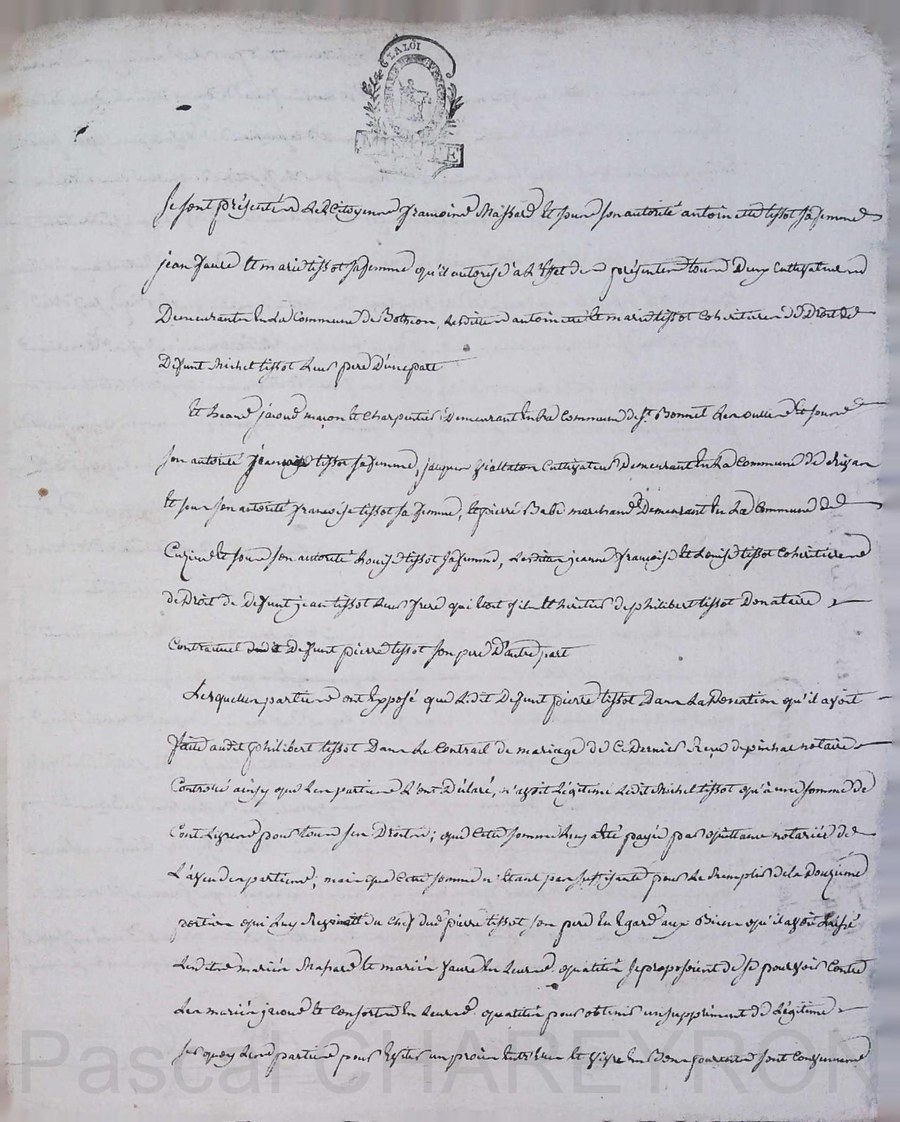 LA LOI
MINUTE
Se sont présentés les Citoyens françoise Massard et sous son autorité antoinette tissot sa femme
jean faure et marie tissot sa femme qu'il autorise à l'effet des présentes tous Deux Cultivateurs
Demeurants en la Commune de Bothéon, lesdittes antoinette et marie tissot Coheritieres de Droit de
Defunt Michel tissot Leur pere D'une part
Et jeanne jacoud maçon et Charpentier Demeurant en la Commune de St Bonnet Les oulles et sous
son autorité jeanne tissot sa femme, jacques fialtaton Cultivateur Demeurant en la Commune de
et sous son autorité francoise tissot sa femme, et pierre Babe marchand Demeurant en la Commune de
Cuzieu et sous son autorité Louise tissot sa femme, lesdittes jeanne françoise et Louise tissot Coheritieres
de Droit de Defunt jean tissot leur frere qui etoit fils et heritier de philibert tissot Donataire
Contractuel dudit Defunt pierre tissot son pere D'autre part
Lesquelles parties ont Exposé que ledit Defunt pierre tissot Dans la Donation qu'il avoit
faite audit philibert tissot Dans le Contrat de mariage de Ce Dernier Reçu depinhac notaire
Controlé ainsy que les parties l'ont Déclaré, n'avoit légitimé ledit Michel tissot qu'à une somme de
Cent Livres pour tous ses Droits; que cette somme luy a été payée par quittance notariée de
L'aveu des parties; mais que Cette somme n'étant pas suffisante pour le Remplir de la Douzième
portion qui luy Revenoit du Chef dud. pierre tissot son pere En Egard aux Biens qu'il avoit Laissé
Lesdits mariés Massard et mariés faure en leurs qualités se proposoient de se pourvoir Contre
Les mariés jacoud et Consorts en leurs qualités pour obtenir un supplément de Légitime
sur quoy Les parties pour Eviter un procès Entr'Elles et vivre En Bonne sont Convenues
Pascal CHAREYRON